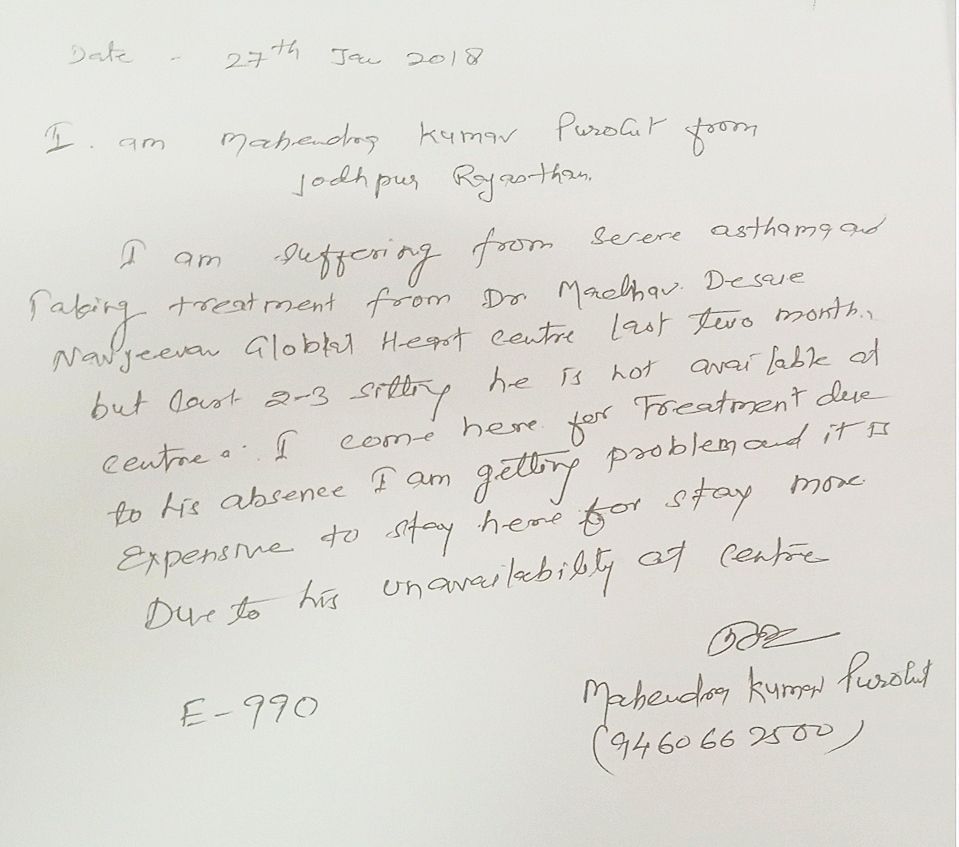 Date - 27th Jan 2018
I. am Mahendra Kumar Purohit from
Jodhpur Rajasthan.
I am suffering from Severe asthama and
Taking treatment from Dr. Madhav. Desaie
Navjeevan Global Heart centre last two month.,
but last 2-3 sitting he is not available at
centre. I come here for Treatment due
to his absence I am getting problem and it is
Expensive to stay here for stay more
Due to his unavailability at centre
Mahendra Kumar Purohit
E-990
(9460662500)